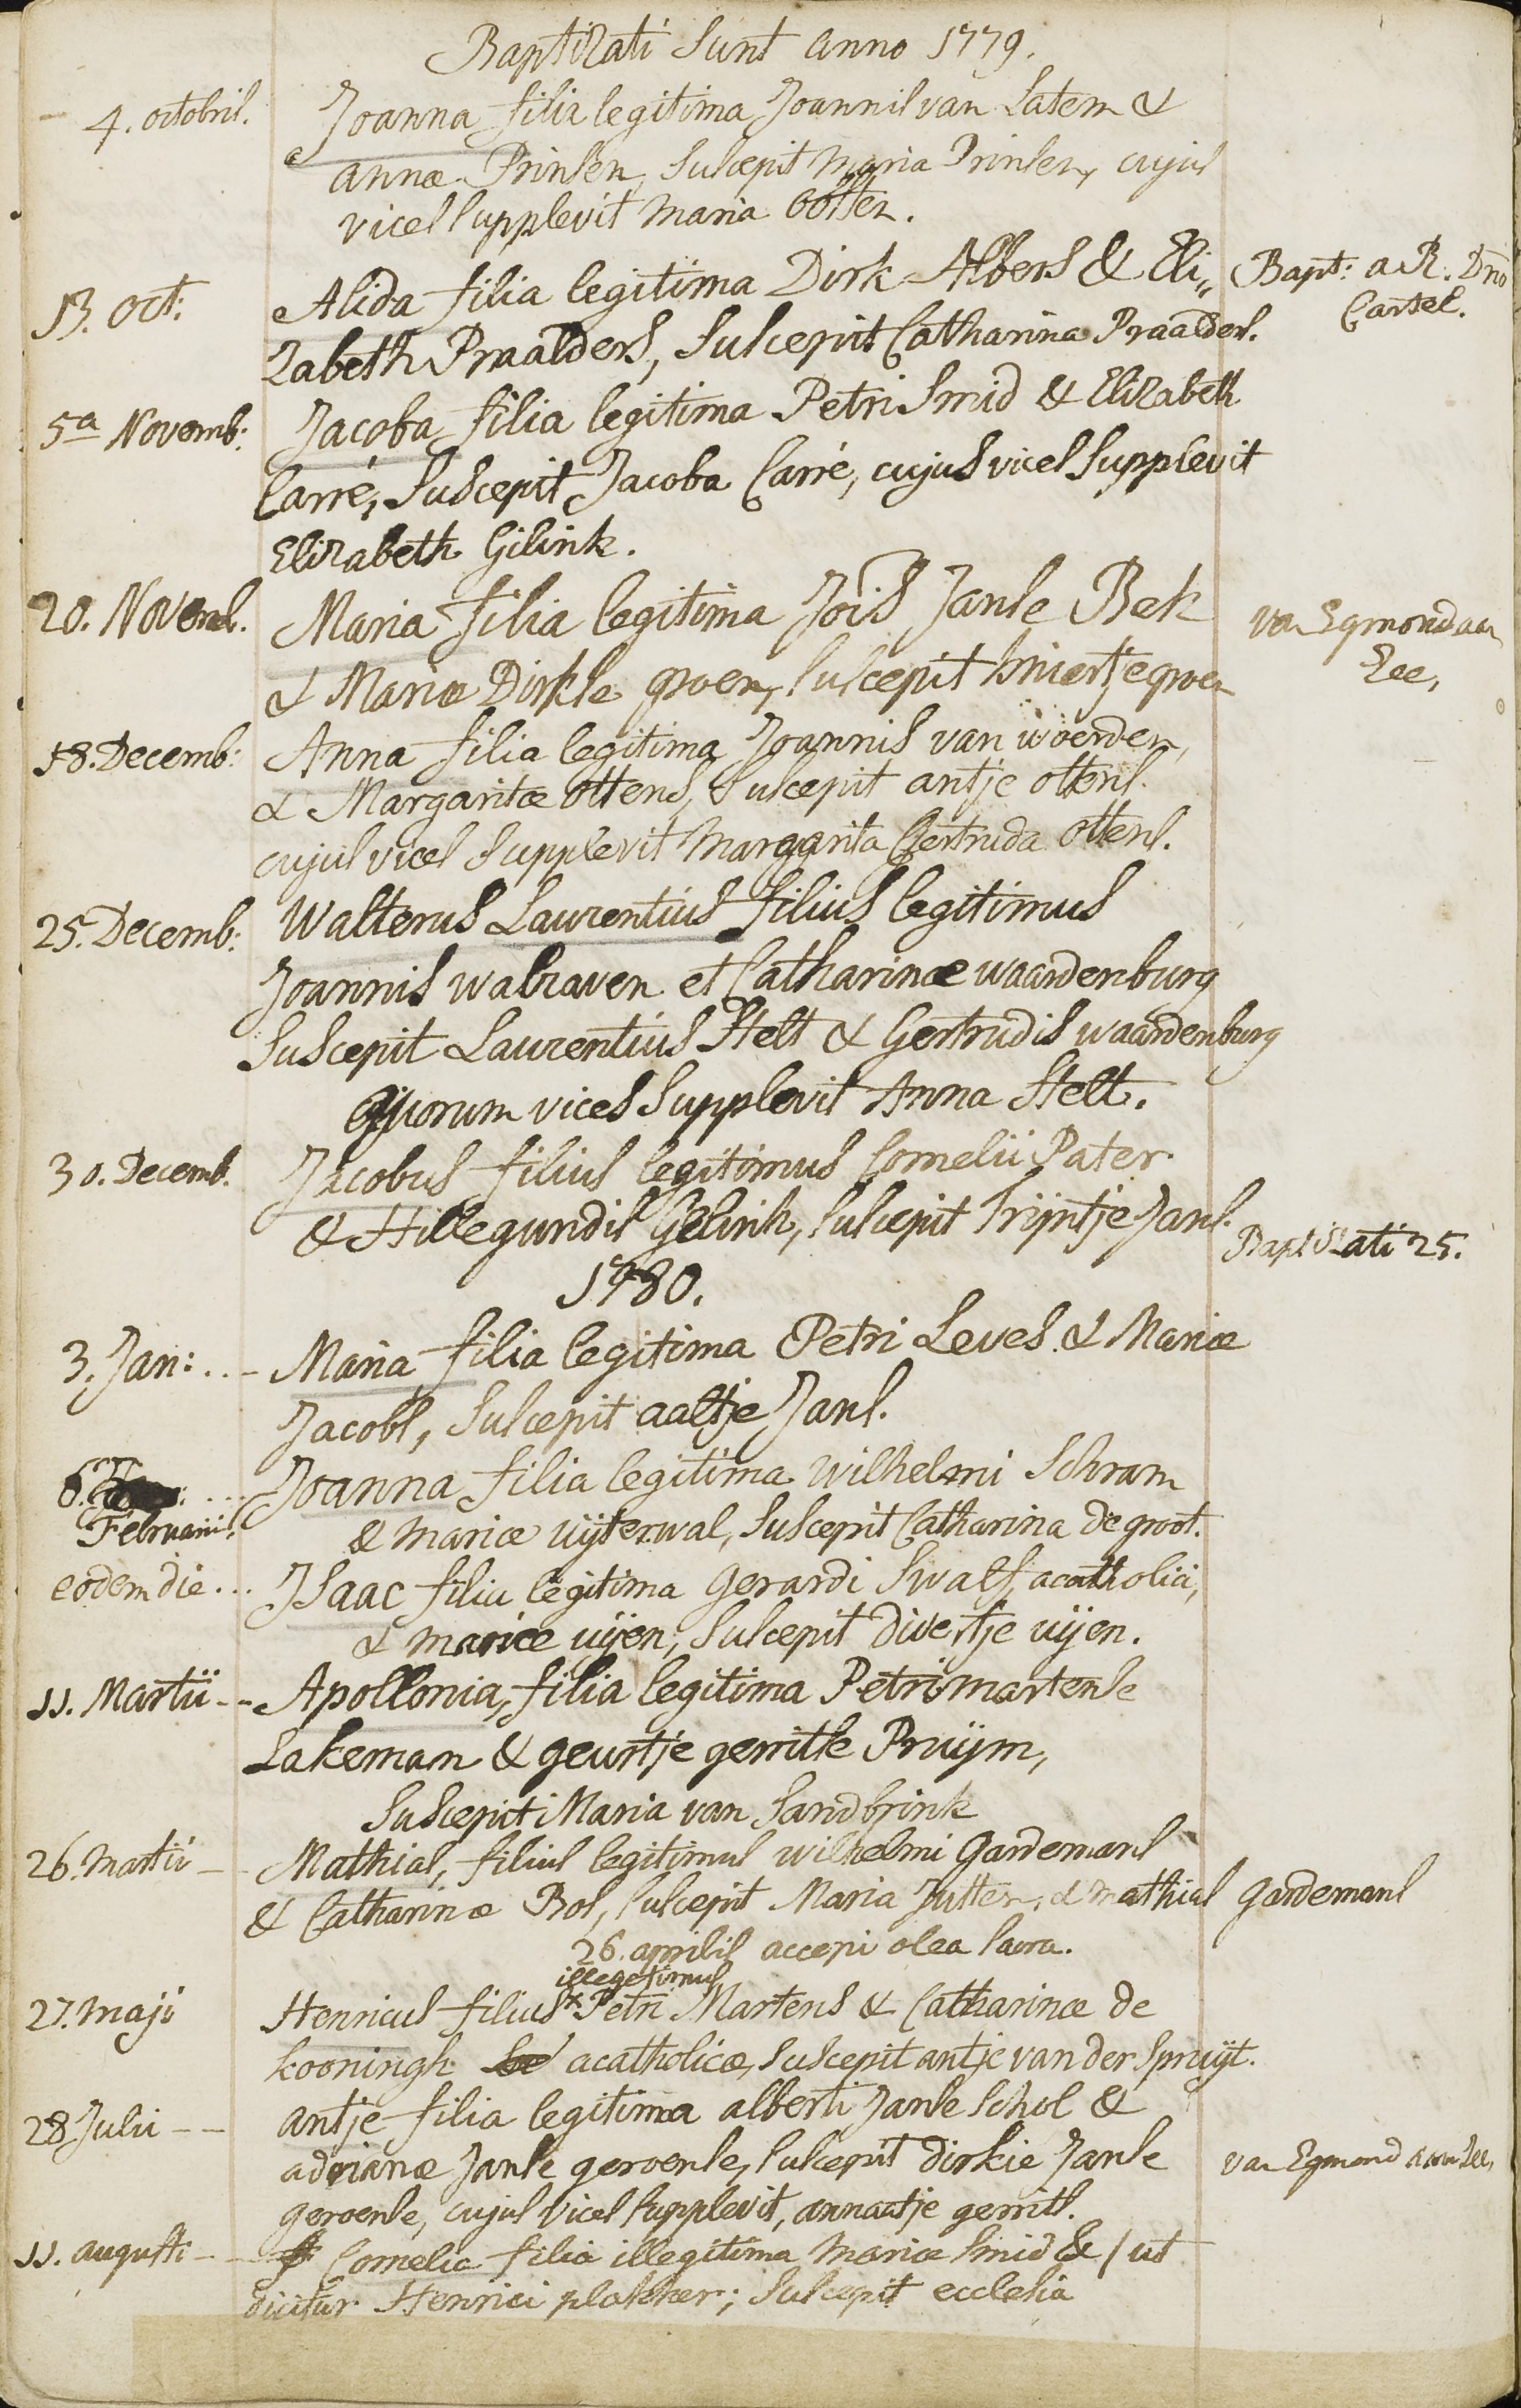 Baptizati Sunt anno 1779.
4. octobris.
Joanna filia legitima Joannis van Latem &
annæ Prinsen, suscepit Maria Prinsen, cujus
vices supplevit Maria Cotter.
13. oct:
Alida filia legitima Dirk Albers & Eli„
Bapt: a R. Dno
zabeth Praalders, Suscepit Catharina Praalders.
Cartel.
5a Novemb:
Jacoba filia legitima Petri Smid & Elizabeth
Carré, Suscepit Jacoba Carré, cujus vices Supplevit
Elizabeth Gilink.
20. Novemb.
Maria filia legitima Jois Janse Bek
van Egmond aan
& Mariæ Dirkse groen, suscepit kniertje groen
Zee,
18. Decemb:
Anna filia legitima Joannis van woerden,
& Margaritæ ottens, Suscepit antje ottens.
cujus vices Supplevit Margarita Gertruda ottens.
25. Decemb:
Walterus Laurentius filius legitimus
Joannis walraven et Catharinæ waardenburg
Suscepit Laurentius Stelt & Gertrudis waardenburg
Quorum vices Supplevit Anna Stelt.
30. Decemb.
Jacobus filius legitimus Cornelii Pater
& Hillegundis Gelink, suscepit Trijntje Jans.
Baptizati 25.
1780.
3. Jan: ..-
Maria filia legitima Petri Leves & Mariæ
Jacobs, Suscepit aaltje Jans.
6. ...
Joanna filia legitima Wilhelmi Schram
Februarii.
& mariæ uijterwal, Suscepit Catharina de groot.
eodem die ...
Isaac filia legitima Gerardi Swalf, acatholici,
& mariæ uijen, Suscepit divertje uijen.
11. Martii --
Apollonia, filia legitima Petri martense
Lakeman & geurtje gerritse Pruijm,
Suscepit Maria van Sandbrink
26. Martii --
Mathias, filius legitimus wilhelmi Gardemans
& Catharinæ Bol, suscepit Maria Jutten, & mathias Gardemans
26. aprilis accepi olea sacra.
illegetimus
27. Maji
Henricus filius x Petri Martens & Catharinæ de
kooningh acatholicæ, suscepit antje van der Spruijt.
28 Julii --
antje filia legitima alberti Janse Schol &
adrianæ Janse geroense, suscepit dirkie Janse
van Egmond aan Zee,
geroense, cujus vices supplevit, annaatje gerrits.
11. augusti --
Cornelia filia illegitima Mariæ Smid & / ut
dicitur Henrici plakker; suscepit ecclesia